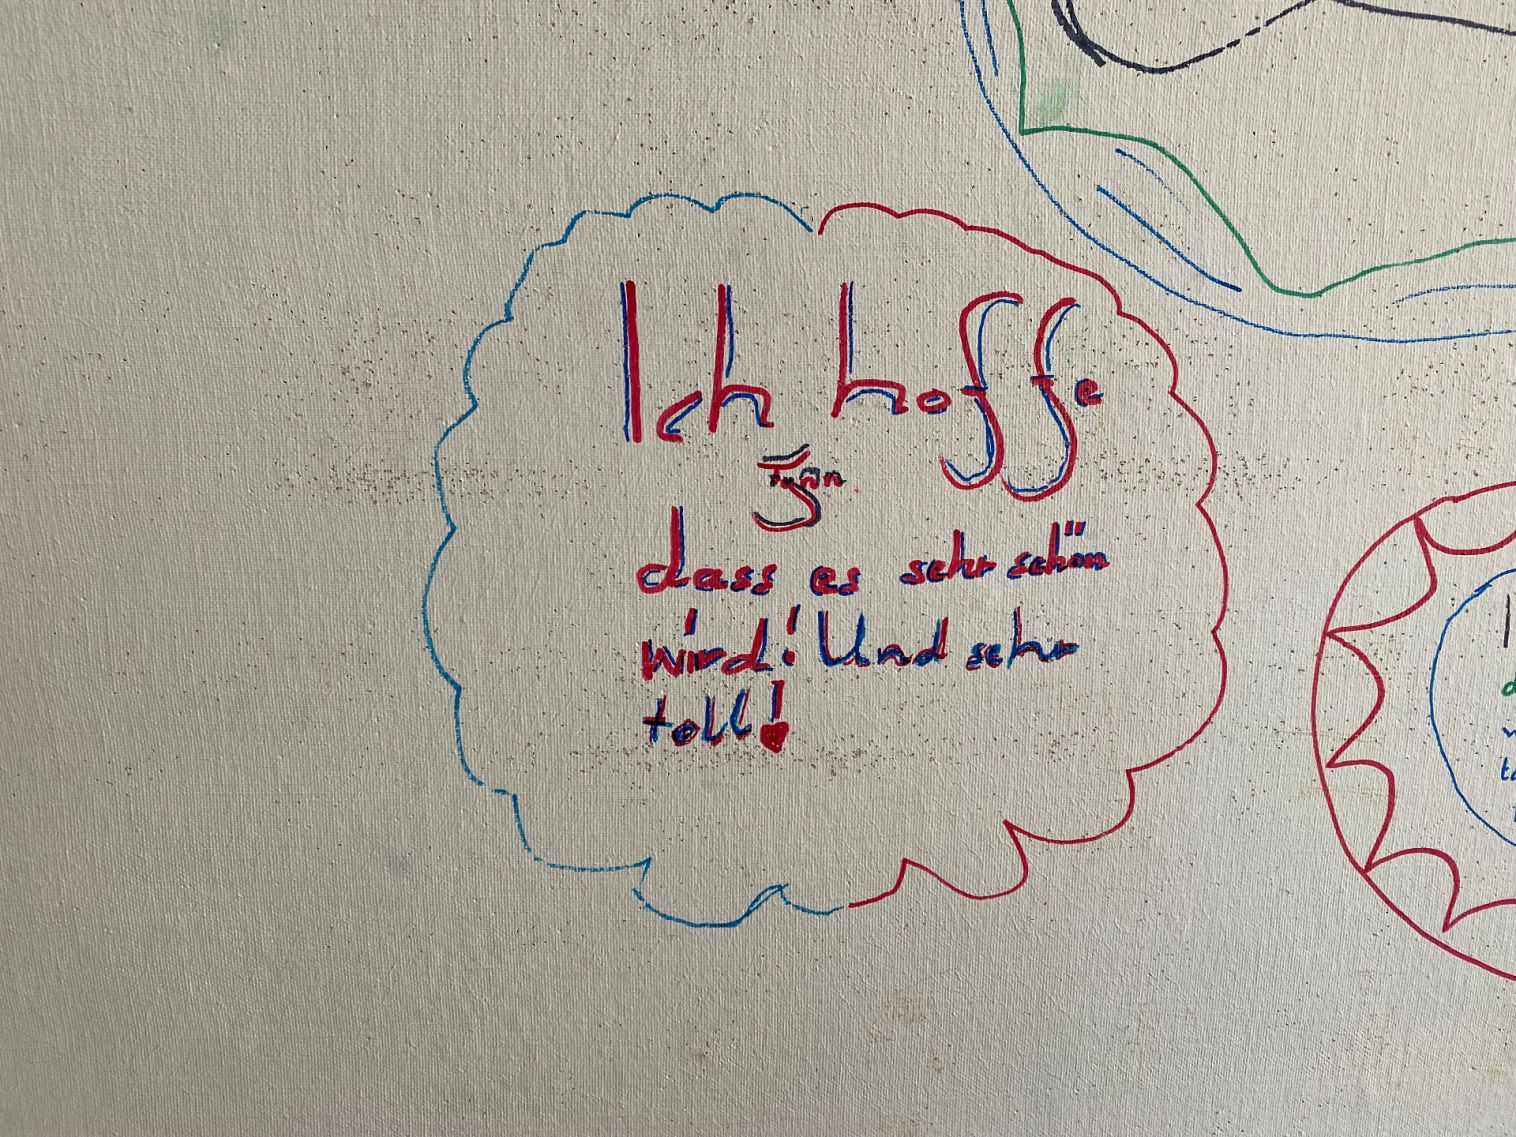 Ich hoffe
dass es sehr schön
wird! Und sehr
toll!